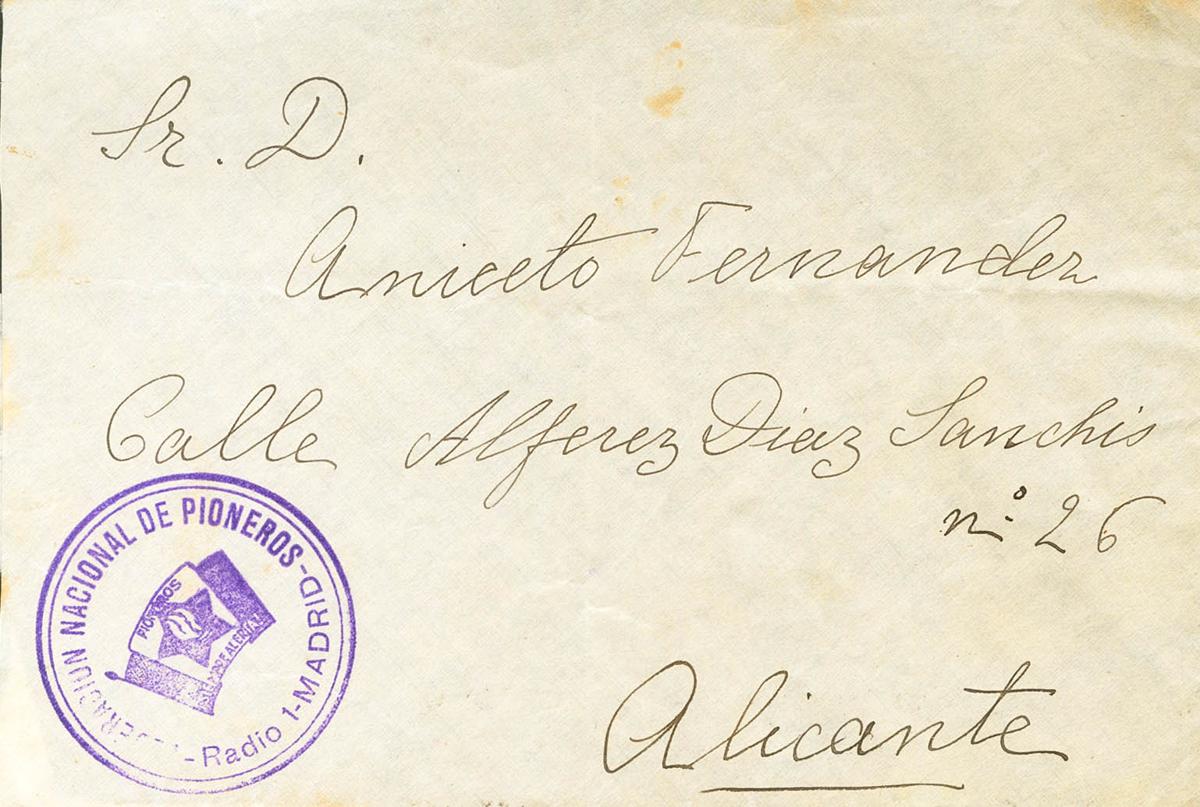 Sr. D.
Aniceto Fernandez
Calle Alferez Diaz Sanchis
nº 26
Alicante
FEDERACIUN NACIONAL DE PIONEROS-
-Radio 1-MADRID-
PIONEROS
ALERTA